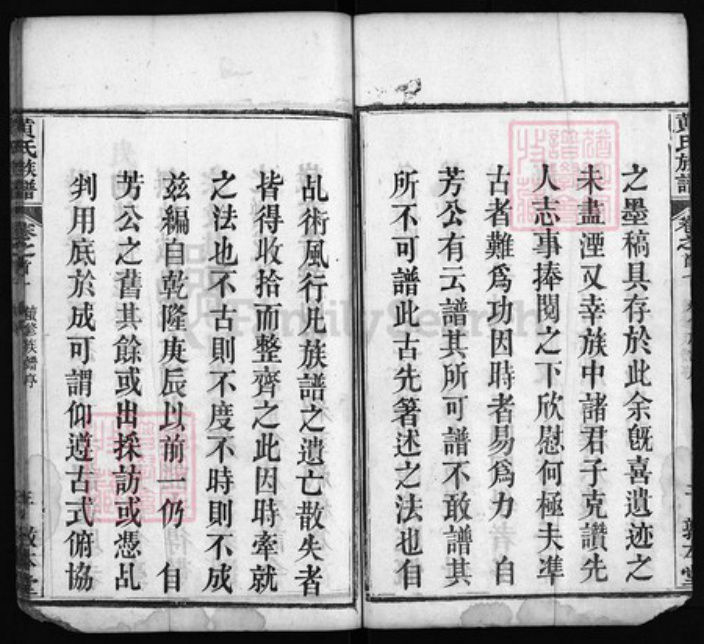 黄氏族譜
卷之首
之墨稿具存於此余旣喜遺迹之
未盡湮又幸族中諸君子克讚先
人志事捧閱之下欣慰何極夫凖
古者難爲功因時者易爲力 自
芳公有云譜其所可譜不敢譜其
所不可譜此古先箸述之法也自
乩術風行凡族譜之遺亡散失者
皆得收拾而整齊之此因時牽就
之法也不古則不度不時則不成
兹編自乾隆庚辰以前一仍 自
芳公之舊其餘或出採訪或憑乩
判用底於成可謂仰遵古式俯協
黄氏族譜
卷之首
敦本堂
FamilySearch